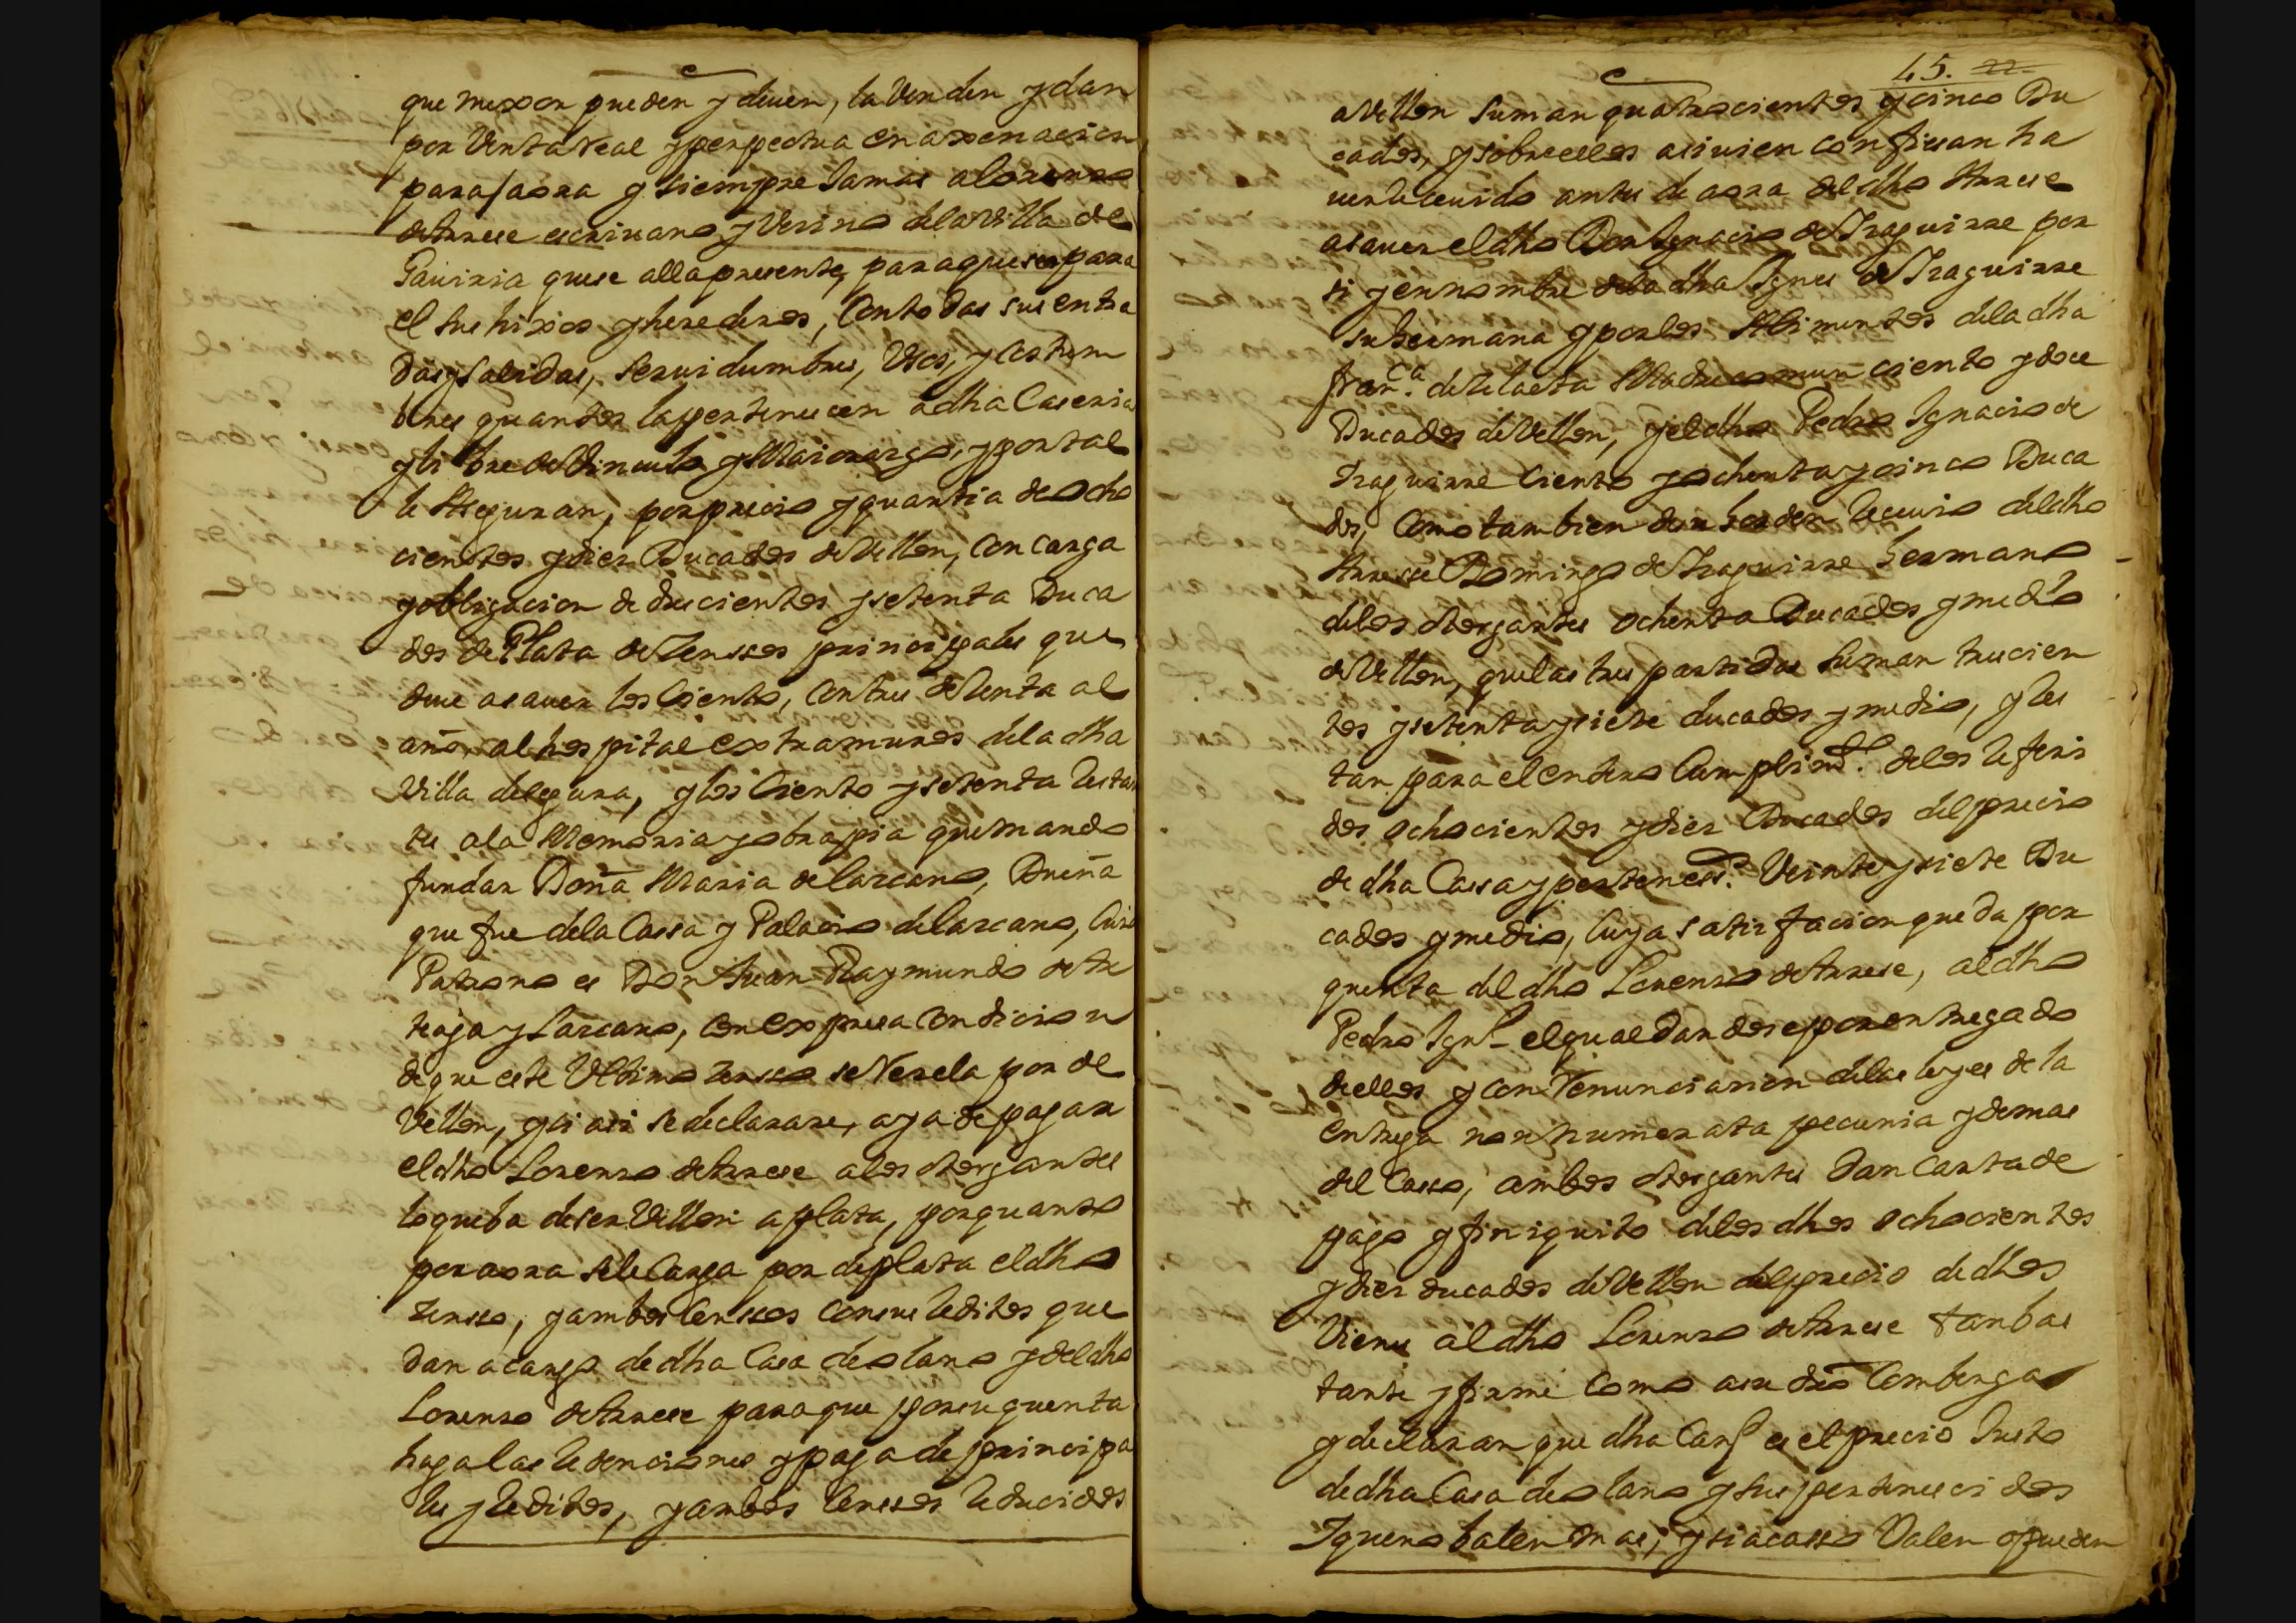 que mexor pueden y deuen, la Venden y dan
por Venta real y perpectua enaxenacion
para aora y siempre Jamas a Lorenzo
de Arrese escriuano y Vecino de la Villa de
Gauiria que se alla presente, para que sea para
el sus hixos y herederos, Con todas sus entra
das y salidas, seruidumbres, Usos, y Costum
bres quantos la pertenecen a dha Caseria
y libre de Vinculo y Maiorazgo, y por tal
le Aseguran, por precio y quantia de ocho
cientos y diez Ducados de Vellon, Con carga
y obligacion de ducientos y setenta Duca
dos de Plata de Zensos principales que
deue a sauer los Ciento, Con tres de Renta al
año, al hospital extramuros de la dha
Villa de Segura, y los Ciento y setenta restan
tes a la Memoria y obra pia que mando
fundar Doña Maria de Lazcano, Dueña
que fue de la Cassa y Palacio de Lazcano, Cuio
Patrono es Don Juan Raymundo de Ar
teaga y Lazcano, con expresa Condicion
de que este Ultimo Zenso se Reçela por de
Vellon, y si assi se declarare, aya de pagar
el dho Lorenzo de Arrese a los otorgantes
lo que ba de ser Vellon a plata, por quanto
por aora se le Carga por de plata el dho
Zenso, y ambos Censsos con sus reditos que
dan a cargo de dha Casa de olano y del dho
Lorenzo de Arrese para que por su quenta
haga las redenciones y paga de principa
les y reditos, y ambos Censsos reducidos
45. 22
a Vellon suman quatrocientos y cinco Du
cados, y sobre ellos assi uien confiesan ha
uer receuido antes de aora del dho Arrese
a sauer el dho Don Ignacio de Yraguirre por
si y en nombre de la dha Ignes de Yraguirre
su hermana y por los Alimentos de la dha
Franca. de Madre comun ciento y doce
Ducados de Vellon, y el dho Pedro Ignacio de
Yraguirre Ciento y ochenta y cinco Duca
dos, Como tambien receuio del dho
Arrese Domingo de Yraguirre hermano
de los otorgantes ochenta Ducados y medio
de Vellon, que las tres partidas suman trecien
tos y setenta y siete ducados y medio, y les
tan para el entero Cumplimto. de los referi
dos ochocientos y diez Ducados del precio
de dha Cassa y pertenessos. Veinte y siete Du
cados y medio, Cuya satisfacion queda por
quenta del dho Lorenzo de Arrese, al dho
Pedro Igno el qual dandose por entregado
de ellos y con renunciacion de las leyes de la
entrega non numerata pecunia y demas
del Casso, ambos otorgantes Dan Carta de
pago y finiquito de los dhos ochocientos
y diez ducados de Vellon del precio de dhos
Vienes al dho Lorenzo de Arrese tan bas
tante y firme Como a su dro Combenga
y declaran que dha es el precio Justo
de dha Casa de olano y sus pertenecidos
Y que no balen mas, y si acasso Valen o pueden